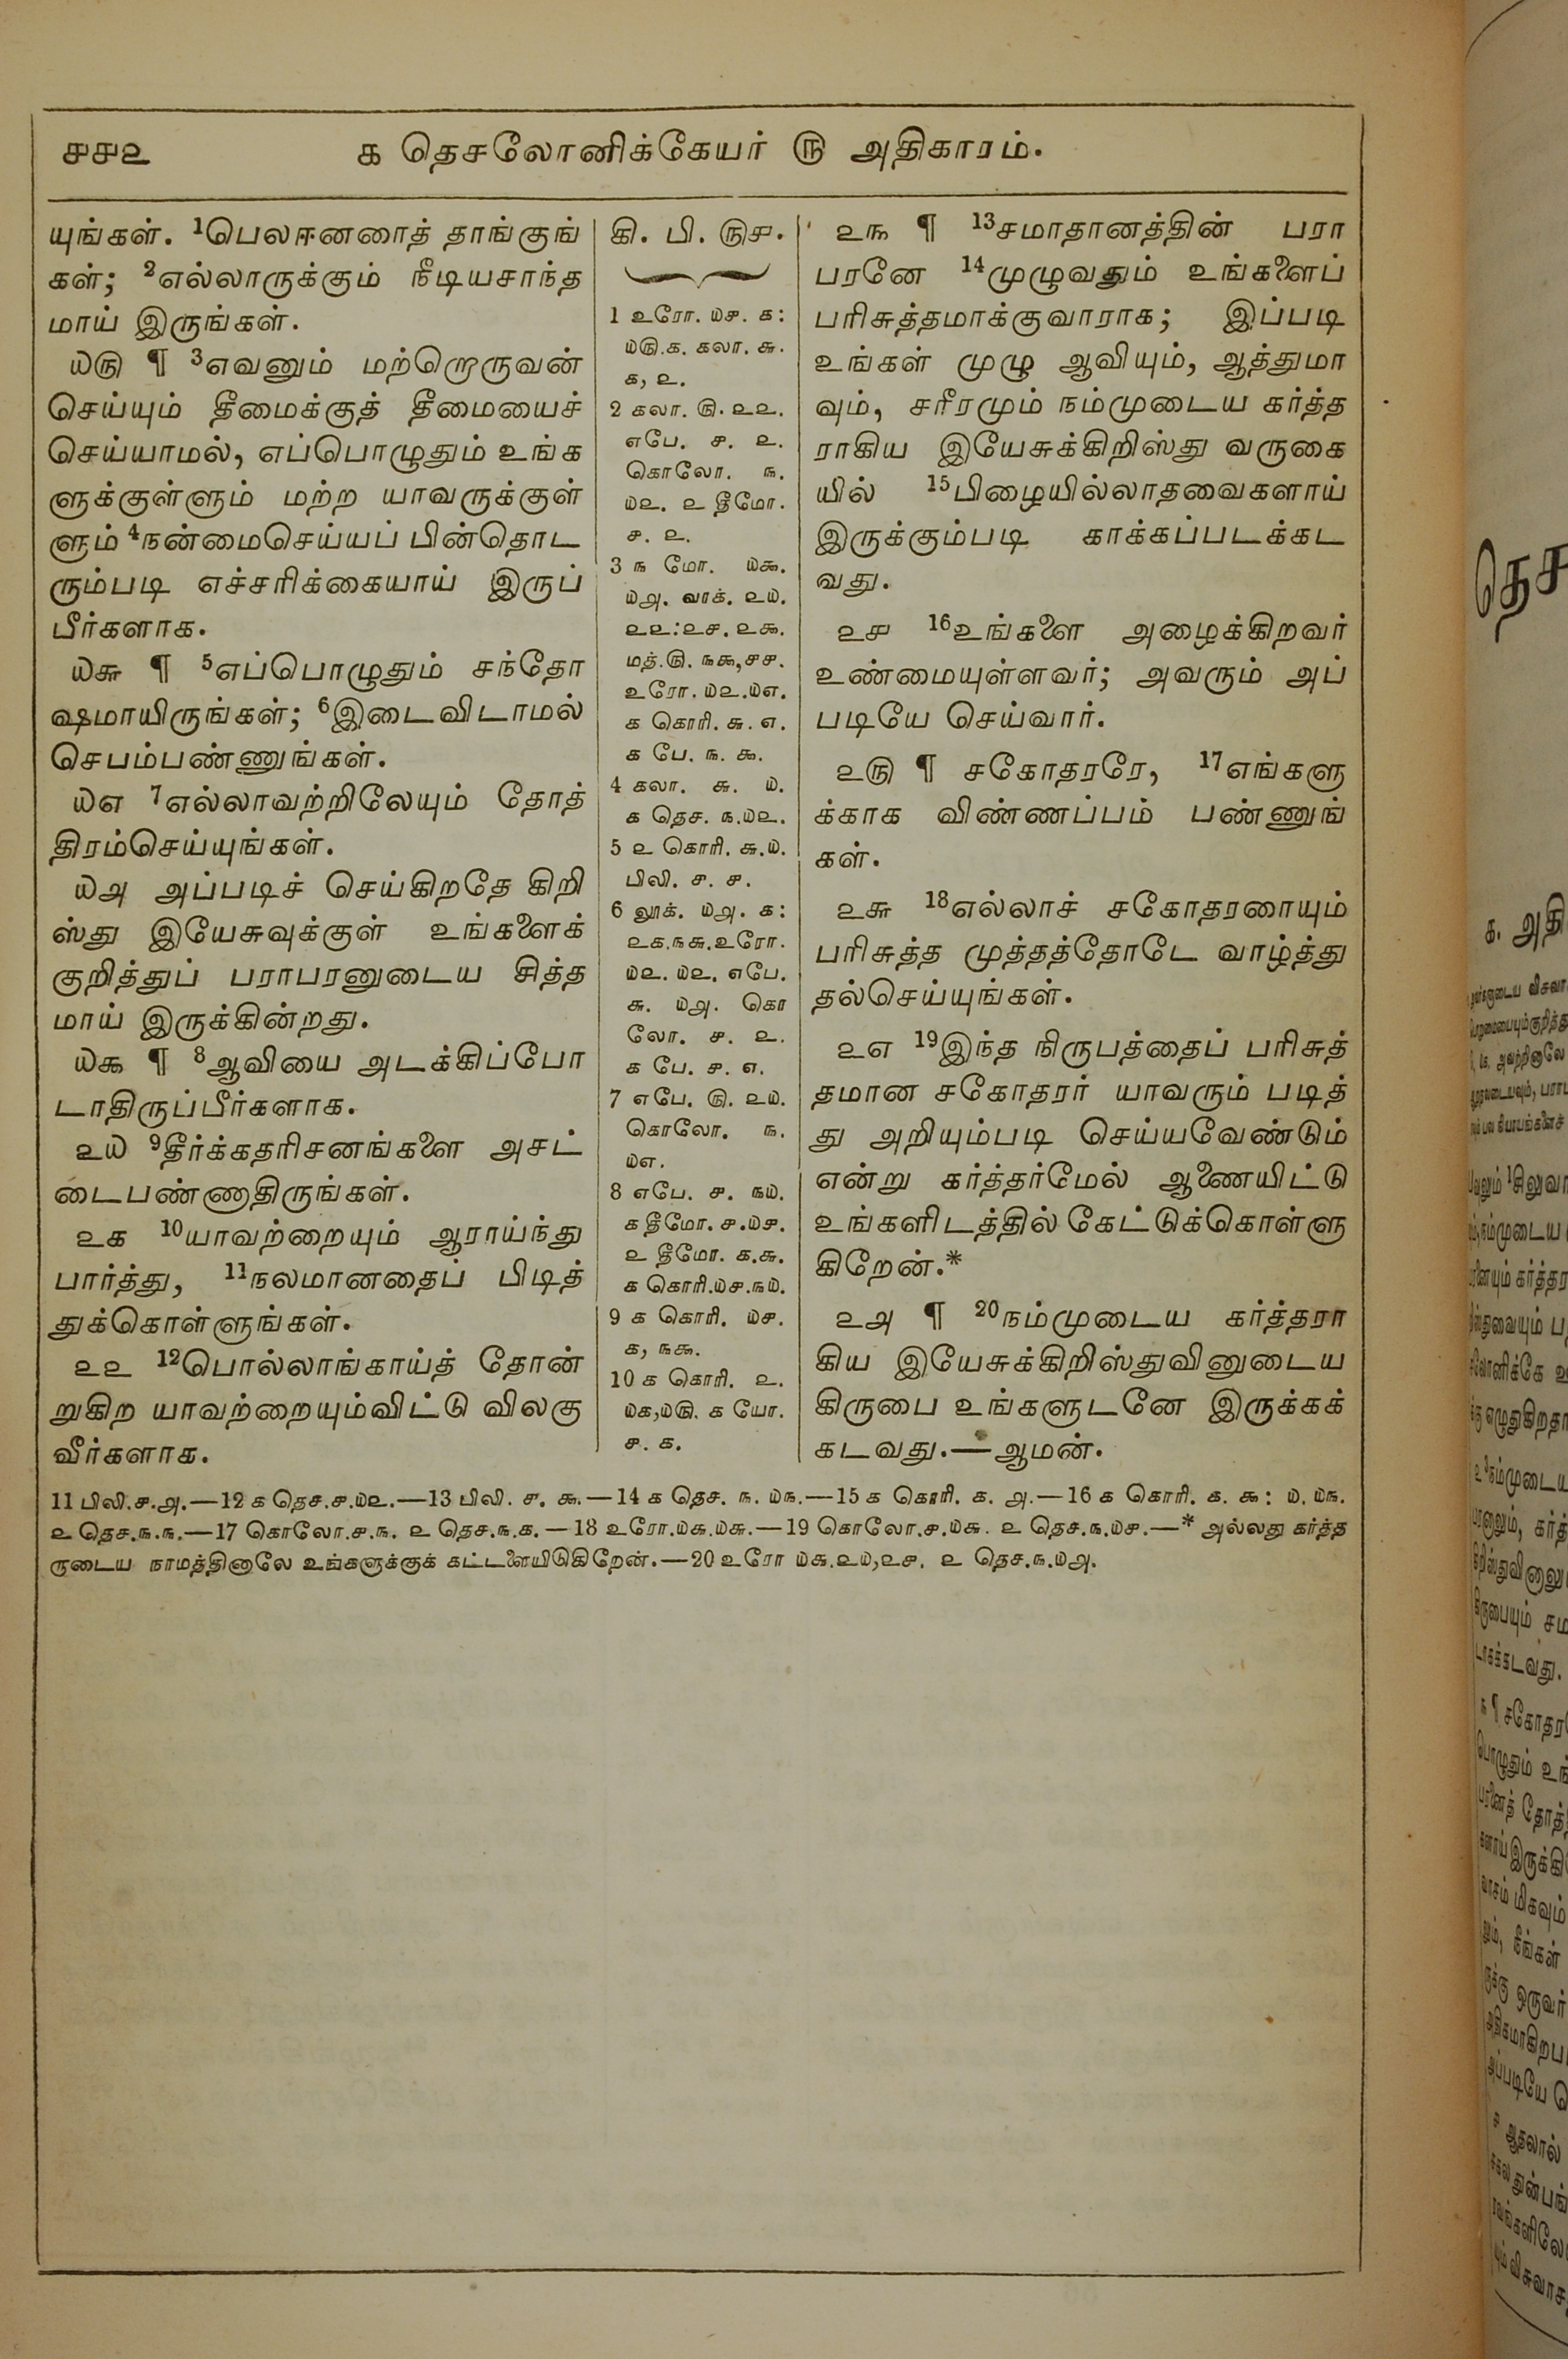 ௪௪௨ ௧ தெசலோனிக்கேயர் ௫ அதிகாரம்.
யுங்கள். ¹பெலஈனரைத் தாங்குங்
கள்; ²எல்லாருக்கும் நீடியசாந்த
மாய் இருங்கள்.
௰௫ ¶ ³எவனும் மற்றொருவன்
செய்யும் தீமைக்குத் தீமையைச்
செய்யாமல், எப்பொழுதும் உங்க
ளுக்குள்ளும் மற்ற யாவருக்குள்
ளும் ⁴நன்மைசெய்யப் பின்தொட
ரும்படி எச்சரிக்கையாய் இருப்
பீர்களாக.
௰௬ ¶ ⁵எப்பொழுதும் சந்தோ
ஷமாயிருங்கள்; ⁶இடைவிடாமல்
செபம்பண்ணுங்கள்.
௰௭ ⁷எல்லாவற்றிலேயும் தோத்
திரம்செய்யுங்கள்.
௰௮ அப்படிச் செய்கிறதே கிறி
ஸ்து இயேசுவுக்குள் உங்களைக்
குறித்துப் பராபரனுடைய சித்த
மாய் இருக்கின்றது.
௰௯ ¶ ⁸ஆவியை அடக்கிப்போ
டாதிருப்பீர்களாக.
௨௰ ⁹தீர்க்கதரிசனங்களை அசட்
டைபண்ணாதிருங்கள்.
௨௧ ¹⁰யாவற்றையும் ஆராய்ந்து
பார்த்து, ¹¹நலமானதைப் பிடித்
துக்கொள்ளுங்கள்.
௨௨ ¹²பொல்லாங்காய்த் தோன்
றுகிற யாவற்றையும்விட்டு விலகு
வீர்களாக.
கி. பி. ௫௪.
1 உரோ. ௰௪. ௧:
௰௫.௧. கலா. ௬.
௧, ௨.
2 கலா. ௫. ௨௨.
எபே. ௪. ௨.
கொலோ. ௩.
௰௨. ௨ தீமோ.
௪. ௨.
3 ௩ மோ. ௰௯.
௰௮. வாக். ௨௰.
௨௨:௨௪. ௨௯.
மத்.௫. ௩௯,௪௪.
உரோ. ௰௨.௰௭.
௧ கொரி. ௬. ௭.
௧ பே. ௩. ௯.
4 கலா. ௬. ௰.
௧ தெச. ௩.௰௨.
5 ௨ கொரி. ௬.௰.
பிலி. ௪. ௪.
6 லூக். ௰௮. ௧:
௨௧.௩௬.உரோ.
௰௨. ௰௨. எபே.
௬. ௰௮. கொ
லோ. ௪. ௨.
௧ பே. ௪. ௭.
7 எபே. ௫. ௨௰.
கொலோ. ௩.
௰௭.
8 எபே. ௪. ௩௰.
௧ தீமோ. ௪.௰௪.
௨ தீமோ. ௧.௬.
௧ கொரி.௰௪.௩௰.
9 ௧ கொரி. ௰௪.
௧, ௩௯.
10 ௧ கொரி. ௨.
௰௧,௰௫. ௧ யோ.
௪. ௧.
௨௩ ¶ ¹³சமாதானத்தின் பரா
பரனே ¹⁴முழுவதும் உங்களைப்
பரிசுத்தமாக்குவாராக; இப்படி
உங்கள் முழு ஆவியும், ஆத்துமா
வும், சரீரமும் நம்முடைய கர்த்த
ராகிய இயேசுக்கிறிஸ்து வருகை
யில் ¹⁵பிழையில்லாதவைகளாய்
இருக்கும்படி காக்கப்படக்கட
வது.
௨௪ ¹⁶உங்களை அழைக்கிறவர்
உண்மையுள்ளவர்; அவரும் அப்
படியே செய்வார்.
௨௫ ¶ சகோதரரே, ¹⁷எங்களு
க்காக விண்ணப்பம் பண்ணுங்
கள்.
௨௬ ¹⁸எல்லாச் சகோதரரையும்
பரிசுத்த முத்தத்தோடே வாழ்த்து
தல்செய்யுங்கள்.
௨௭ ¹⁹இந்த நிருபத்தைப் பரிசுத்
தமான சகோதரர் யாவரும் படித்
து அறியும்படி செய்யவேண்டும்
என்று கர்த்தர்மேல் ஆணையிட்டு
உங்களிடத்தில் கேட்டுக்கொள்ளு
கிறேன்.*
௨௮ ¶ ²⁰நம்முடைய கர்த்தரா
கிய இயேசுக்கிறிஸ்துவினுடைய
கிருபை உங்களுடனே இருக்கக்
கடவது.—ஆமன்.
11 பிலி.௪.௮.—12 ௧ தெச.௪.௰௨.—13 பிலி. ௪. ௯.—14 ௧ தெச. ௩. ௰௩.—15 ௧ கொரி. ௧. ௮.—16 ௧ கொரி. ௧. ௯: ௰. ௰௩.
௨ தெச.௩.௩.—17 கொலோ.௪.௩. ௨ தெச.௩.௧.—18 உரோ.௰௬.௰௬.—19 கொலோ.௪.௰௬. ௨ தெச.௩.௰௪.—* அல்லது கர்த்த
ருடைய நாமத்தினாலே உங்களுக்குக் கட்டளையிடுகிறேன்.—20 உரோ ௰௬.௨௰,௨௪. ௨ தெச.௩.௰௮.